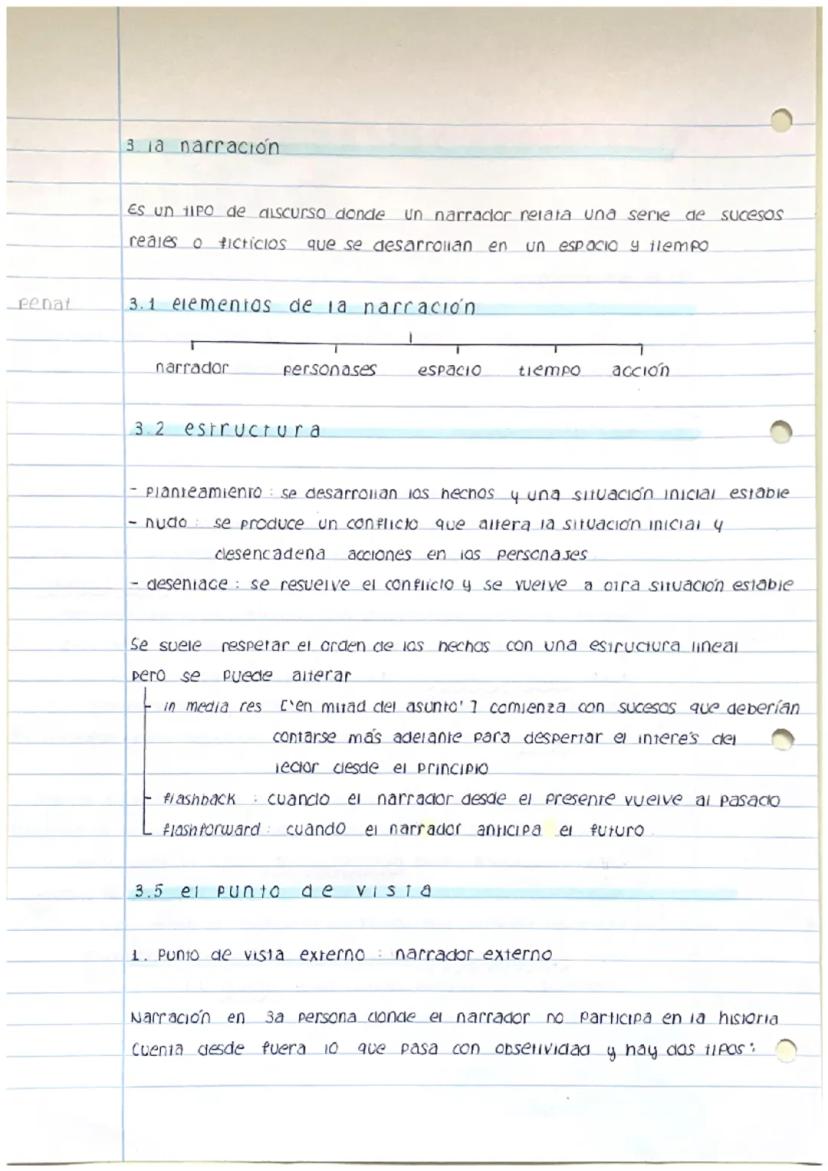 3 la narración
Es un tipo de discurso donde un narrador relata una serie de sucesos
reales o ficticios que se desarrollan en un espacio y tiempo
penat
3.1 elementos de la narración
narrador personases espacio tiempo acción
3.2 estructura
- Planteamiento : se desarrollan los hechos y una situación inicial estable
- nudo : se produce un conflicto que altera la situación inicial y
desencadena acciones en los personajes
- desenlace : se resuelve el conflicto y se vuelve a otra situación estable
Se suele respetar el orden de los hechos con una estructura lineal
pero se puede alterar
in media res ['en mitad del asunto'] comienza con sucesos que deberían
contarse más adelante para despertar el interés del
lector desde el principio
flashback : cuando el narrador desde el presente vuelve al pasado
flashforward : cuando el narrador anticipa el futuro
3.5 el punto de vista
1. Punto de vista externo : narrador externo
Narración en 3a persona donde el narrador no participa en la historia
Cuenta desde fuera lo que pasa con obsetividad y hay dos tipos :